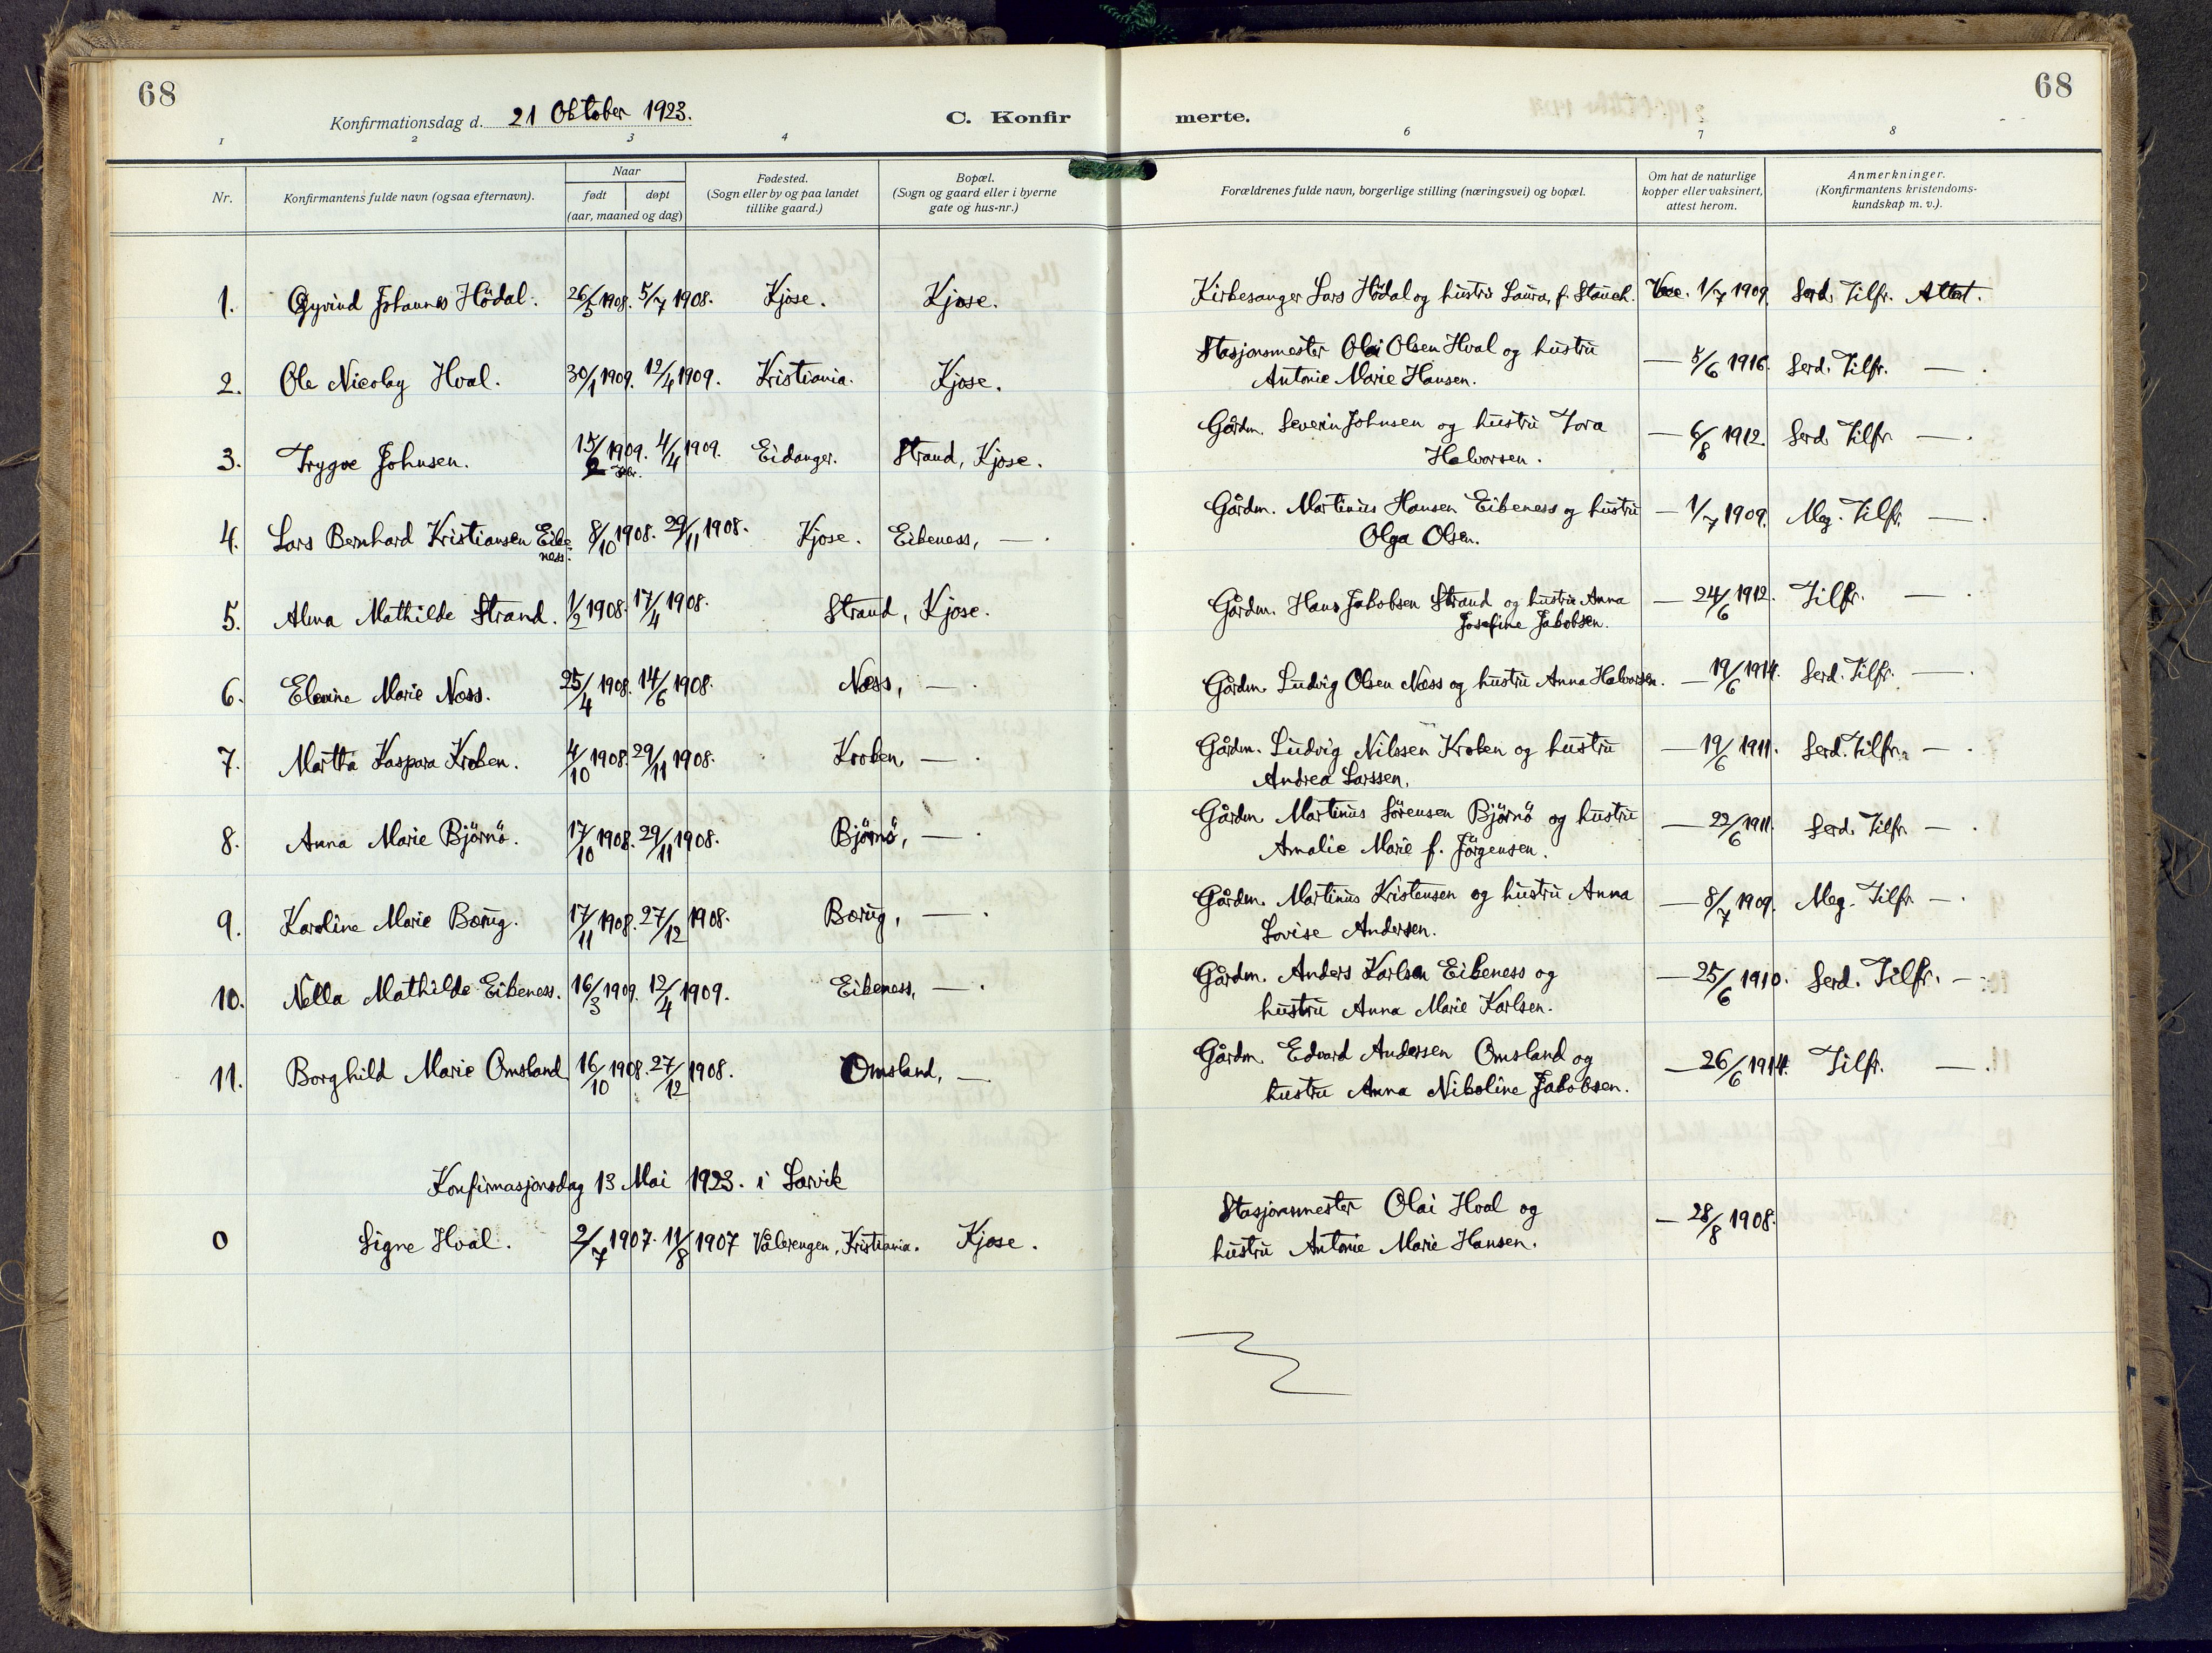 68
68
Konfirmationsdag d. 21 Oktober 1923.
C. Konfirmerte.
1 2 3 4 6 7 8
Nr.
Konfirmantens fulde navn (ogsaa efternavn).
Naar
født døpt
(aar, maaned og dag)
Fødested.
(Sogn eller by og paa landet
tillike gaard.)
Bopæl.
(Sogn og gaard eller i byerne
gate og hus-nr.)
Forældrenes fulde navn, borgerlige stilling (næringsvei) og bopæl.
Om hat de naturlige
kopper eller vaksinert,
attest herom.
Anmerkninger.
(Konfirmantens kristendoms-
kundskap m. v.).
1. Øyvind Johannes Hödal. 26/5 1908. 5/7 1908. Kjose. Kjose. Kirkesanger Lars Hödal og hustru Laura, f. Stauch. Vac. 1/7 1909. Serd. Tilfr. Attest.
2. Ole Nicolay Hval. 30/1 1909. 12/4 1909. Kristiania. Kjose. Stasjonsmester Olai Olsen Hval og hustru
Antonie Marie Hansen. — 5/6 1916. Serd. Tilfr. — .
3. Trygve Johnsen. 15/2 1909. 4/4 1909. Eidanger. Strand, Kjose. Gårdm. Severin Johnsen og hustru Tora
Febr. Halvorsen. — 6/8 1912. Serd. Tilfr. — .
4. Lars Bernhard Kristiansen Eike
ness. 8/10 1908. 29/11 1908. Kjose. Eikeness, — . Gårdm. Martinus Hansen Eikeness og hustru
Olga Olsen. — 1/7 1909. Meg. Tilfr. — .
5. Alma Mathilde Strand. 1/2 1908. 17/4 1908. Strand, Kjose. Gårdm. Hans Jakobsen Strand og hustru Anna
Josefine Jakobsen. — 24/6 1912. Tilfr. — .
6. Elevine Marie Næss. 25/4 1908. 14/6 1908. Næss, — . Gårdm. Ludvig Olsen Næss og hustru Anna Halvorsen. — 19/6 1914. Serd. Tilfr. — .
7. Martha Kaspara Kroken. 4/10 1908. 29/11 1908. Kroken, — . Gårdm. Ludvig Nilssen Kroken og hustru
Andrea Larssen. — 19/6 1911. Serd. Tilfr. — .
8. Anna Marie Björnö. 17/10 1908. 29/11 1908. Björnö, — . Gårdm. Martinus Sörensen Björnö og hustru
Amalie Marie f. Jörgensen. — 22/6 1911. Serd. Tilfr. — .
9. Karoline Marie Børug. 17/11 1908. 27/12 1908. Børug, — . Gårdm. Martinus Kristensen og hustru Anna
Lovise Andersen. — 8/7 1909. Meg. Tilfr. — .
10. Nella Mathilde Eikeness. 16/3 1909. 12/4 1909. Eikeness, — . Gårdm. Anders Karlsen Eikeness og
hustru Anna Marie Karlsen. — 25/6 1910. Serd. Tilfr. — .
11. Borghild Marie Omsland 16/10 1908. 27/12 1908. Omsland, — Gårdm. Edvard Andersen Omsland og
hustru Anna Nikoline Jakobsen. — 26/6 1914. Tilfr. — .
Konfirmasjonsdag 13 Mai 1923. i Larvik
0 Signe Hval. 2/7 1907. 11/8 1907 Vålerengen, Kristiania. Kjose. Stasjonsmester Olai Hval og
hustru Antonie Marie Hansen. — 28/8 1908.